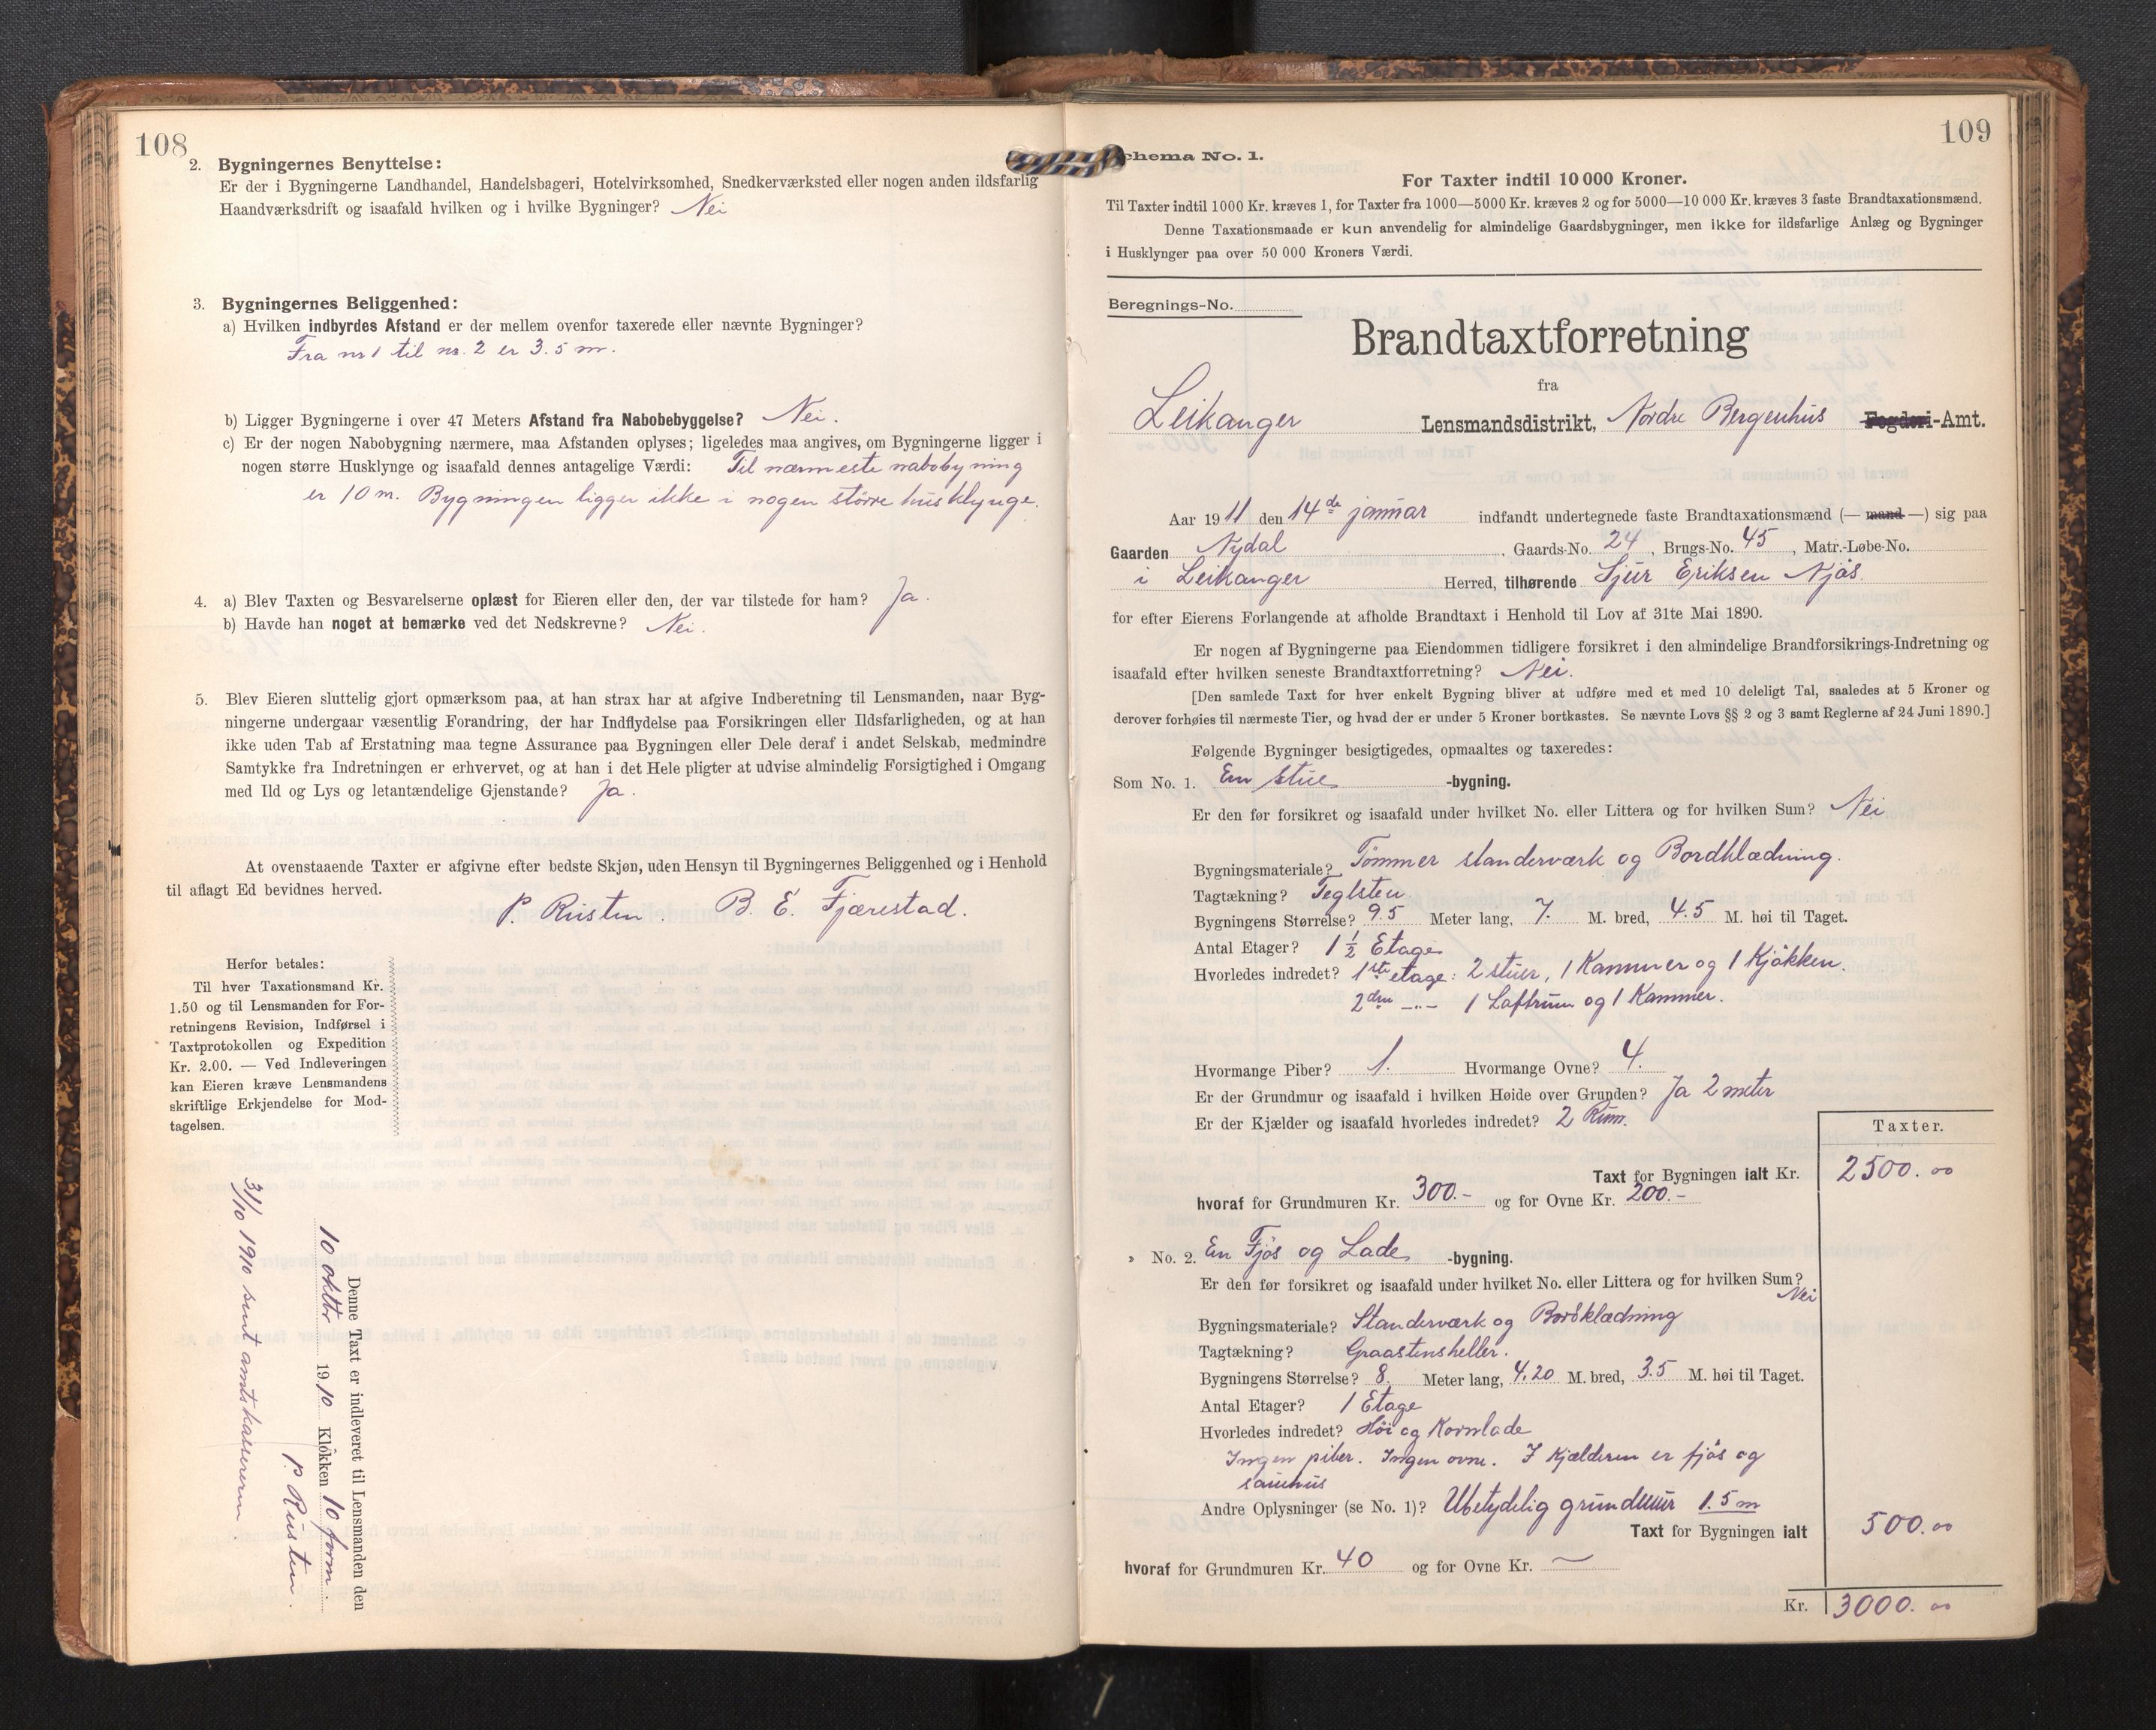 108
2. Bygningernes Benyttelse:
Er der i Bygningerne Landhandel, Handelsbageri, Hotelvirksomhed, Snedkerværksted eller nogen anden ildsfarlig
Haandværksdrift og isaafald hvilken og i hvilke Bygninger? Nei
3. Bygningernes Beliggenhed:
a) Hvilken indbyrdes Afstand er der mellem ovenfor taxerede eller nævnte Bygninger?
Fra nr 1 til nr. 2 er 3.5 m.
b) Ligger Bygningerne i over 47 Meters Afstand fra Nabobebyggelse? Nei.
c) Er der nogen Nabobygning nærmere, maa Afstanden oplyses; ligeledes maa angives, om Bygningerne ligger i
nogen større Husklynge og isaafald dennes antagelige Værdi: Til nærmeste nabobygning
er 10 m. Bygningen ligger ikke i nogen større husklynge.
4. a) Blev Taxten og Besvarelserne oplæst for Eieren eller den, der var tilstede for ham? Ja.
b) Havde han noget at bemærke ved det Nedskrevne? Nei.
5. Blev Eieren sluttelig gjort opmærksom paa, at han strax har at afgive Indberetning til Lensmanden, naar Byg-
ningerne undergaar væsentlig Forandring, der har Indflydelse paa Forsikringen eller Ildsfarligheden, og at han
ikke uden Tab af Erstatning maa tegne Assurance paa Bygningen eller Dele deraf i andet Selskab, medmindre
Samtykke fra Indretningen er erhvervet, og at han i det Hele pligter at udvise almindelig Forsigtighed i Omgang
med Ild og Lys og letantændelige Gjenstande? Ja.
At ovenstaaende Taxter er afgivne efter bedste Skjøn, uden Hensyn til Bygningernes Beliggenhed og i Henhold
til aflagt Ed bevidnes herved.
P. Risten. B. E. Fjærestad.
Herfor betales:
Til hver Taxationsmand Kr.
1.50 og til Lensmanden for For-
retningens Revision, Indførsel i
Taxtprotokollen og Expedition
Kr. 2.00. — Ved Indleveringen
kan Eieren kræve Lensmandens
skriftlige Erkjendelse for Mod-
tagelsen.
Denne Taxt er indleveret til Lensmanden den
10 oktbr 1910 Klokken 10 form.
P. Risten.
31/10 1910 sent amtskassereren
109
chema No. 1.
For Taxter indtil 10 000 Kroner.
Til Taxter indtil 1000 Kr. kræves 1, for Taxter fra 1000—5000 Kr. kræves 2 og for 5000—10 000 Kr. kræves 3 faste Brandtaxationsmænd.
Denne Taxationsmaade er kun anvendelig for almindelige Gaardsbygninger, men ikke for ildsfarlige Anlæg og Bygninger
i Husklynger paa over 50 000 Kroners Værdi.
Beregnings-No.
Brandtaxtforretning
fra
Leikanger Lensmandsdistrikt, Nordre Bergenhus Fogderi-Amt.
Aar 1911 den 14de januar indfandt undertegnede faste Brandtaxationsmænd (— mand —) sig paa
Gaarden Nydal, Gaards-No. 24, Brugs-No. 45, Matr.-Løbe-No.
i Leikanger Herred, tilhørende Sjur Eriksen Njøs.
for efter Eierens Forlangende at afholde Brandtaxt i Henhold til Lov af 31te Mai 1890.
Er nogen af Bygningerne paa Eiendommen tidligere forsikret i den almindelige Brandforsikrings-Indretning og
isaafald efter hvilken seneste Brandtaxtforretning? Nei.
[Den samlede Taxt for hver enkelt Bygning bliver at udføre med et med 10 deleligt Tal, saaledes at 5 Kroner og
derover forhøies til nærmeste Tier, og hvad der er under 5 Kroner bortkastes. Se nævnte Lovs §§ 2 og 3 samt Reglerne af 24 Juni 1890.]
Følgende Bygninger besigtigedes, opmaaltes og taxeredes:
Som No. 1. En stue -bygning.
Er den før forsikret og isaafald under hvilket No. eller Littera og for hvilken Sum? Nei
Bygningsmateriale? Tømmer standerværk og Bordklædning.
Tagtækning? Teglsten.
Bygningens Størrelse? 9.5 Meter lang, 7. M. bred, 4.5 M. høi til Taget.
Antal Etager? 1 1/2 Etage
Hvorledes indredet? 1ste etage: 2 stuer, 1 Kammer og 1 Kjøkken.
2den -"- 1 Loftrum og 1 Kammer.
Hvormange Piber? 1. Hvormange Ovne? 4.
Er der Grundmur og isaafald i hvilken Høide over Grunden? Ja 2 meter
Er der Kjælder og isaafald hvorledes indredet? 2 Rum.
Taxter.
Taxt for Bygningen ialt Kr. 2500.00
hvoraf for Grundmuren Kr. 300.- og for Ovne Kr. 200.-
» No. 2. En Fjøs og Lade -bygning.
Er den før forsikret og isaafald under hvilket No. eller Littera og for hvilken Sum?
Nei
Bygningsmateriale? Standerværk og Bordklædning
Tagtækning? Graastensheller.
Bygningens Størrelse? 8. Meter lang, 4.20 M. bred, 3.5 M. høi til Taget.
Antal Etager? 1 Etage
Hvorledes indredet? Høi og Kornlade
Ingen piber. Ingen ovne. I Kjælderen er fjøs og
sauhus
Andre Oplysninger (se No. 1)? Ubetydelig grundmur 1.5 m
Taxt for Bygningen ialt 500.00
hvoraf for Grundmuren Kr. 40 og for Ovne Kr. —
Kr. 3000.00